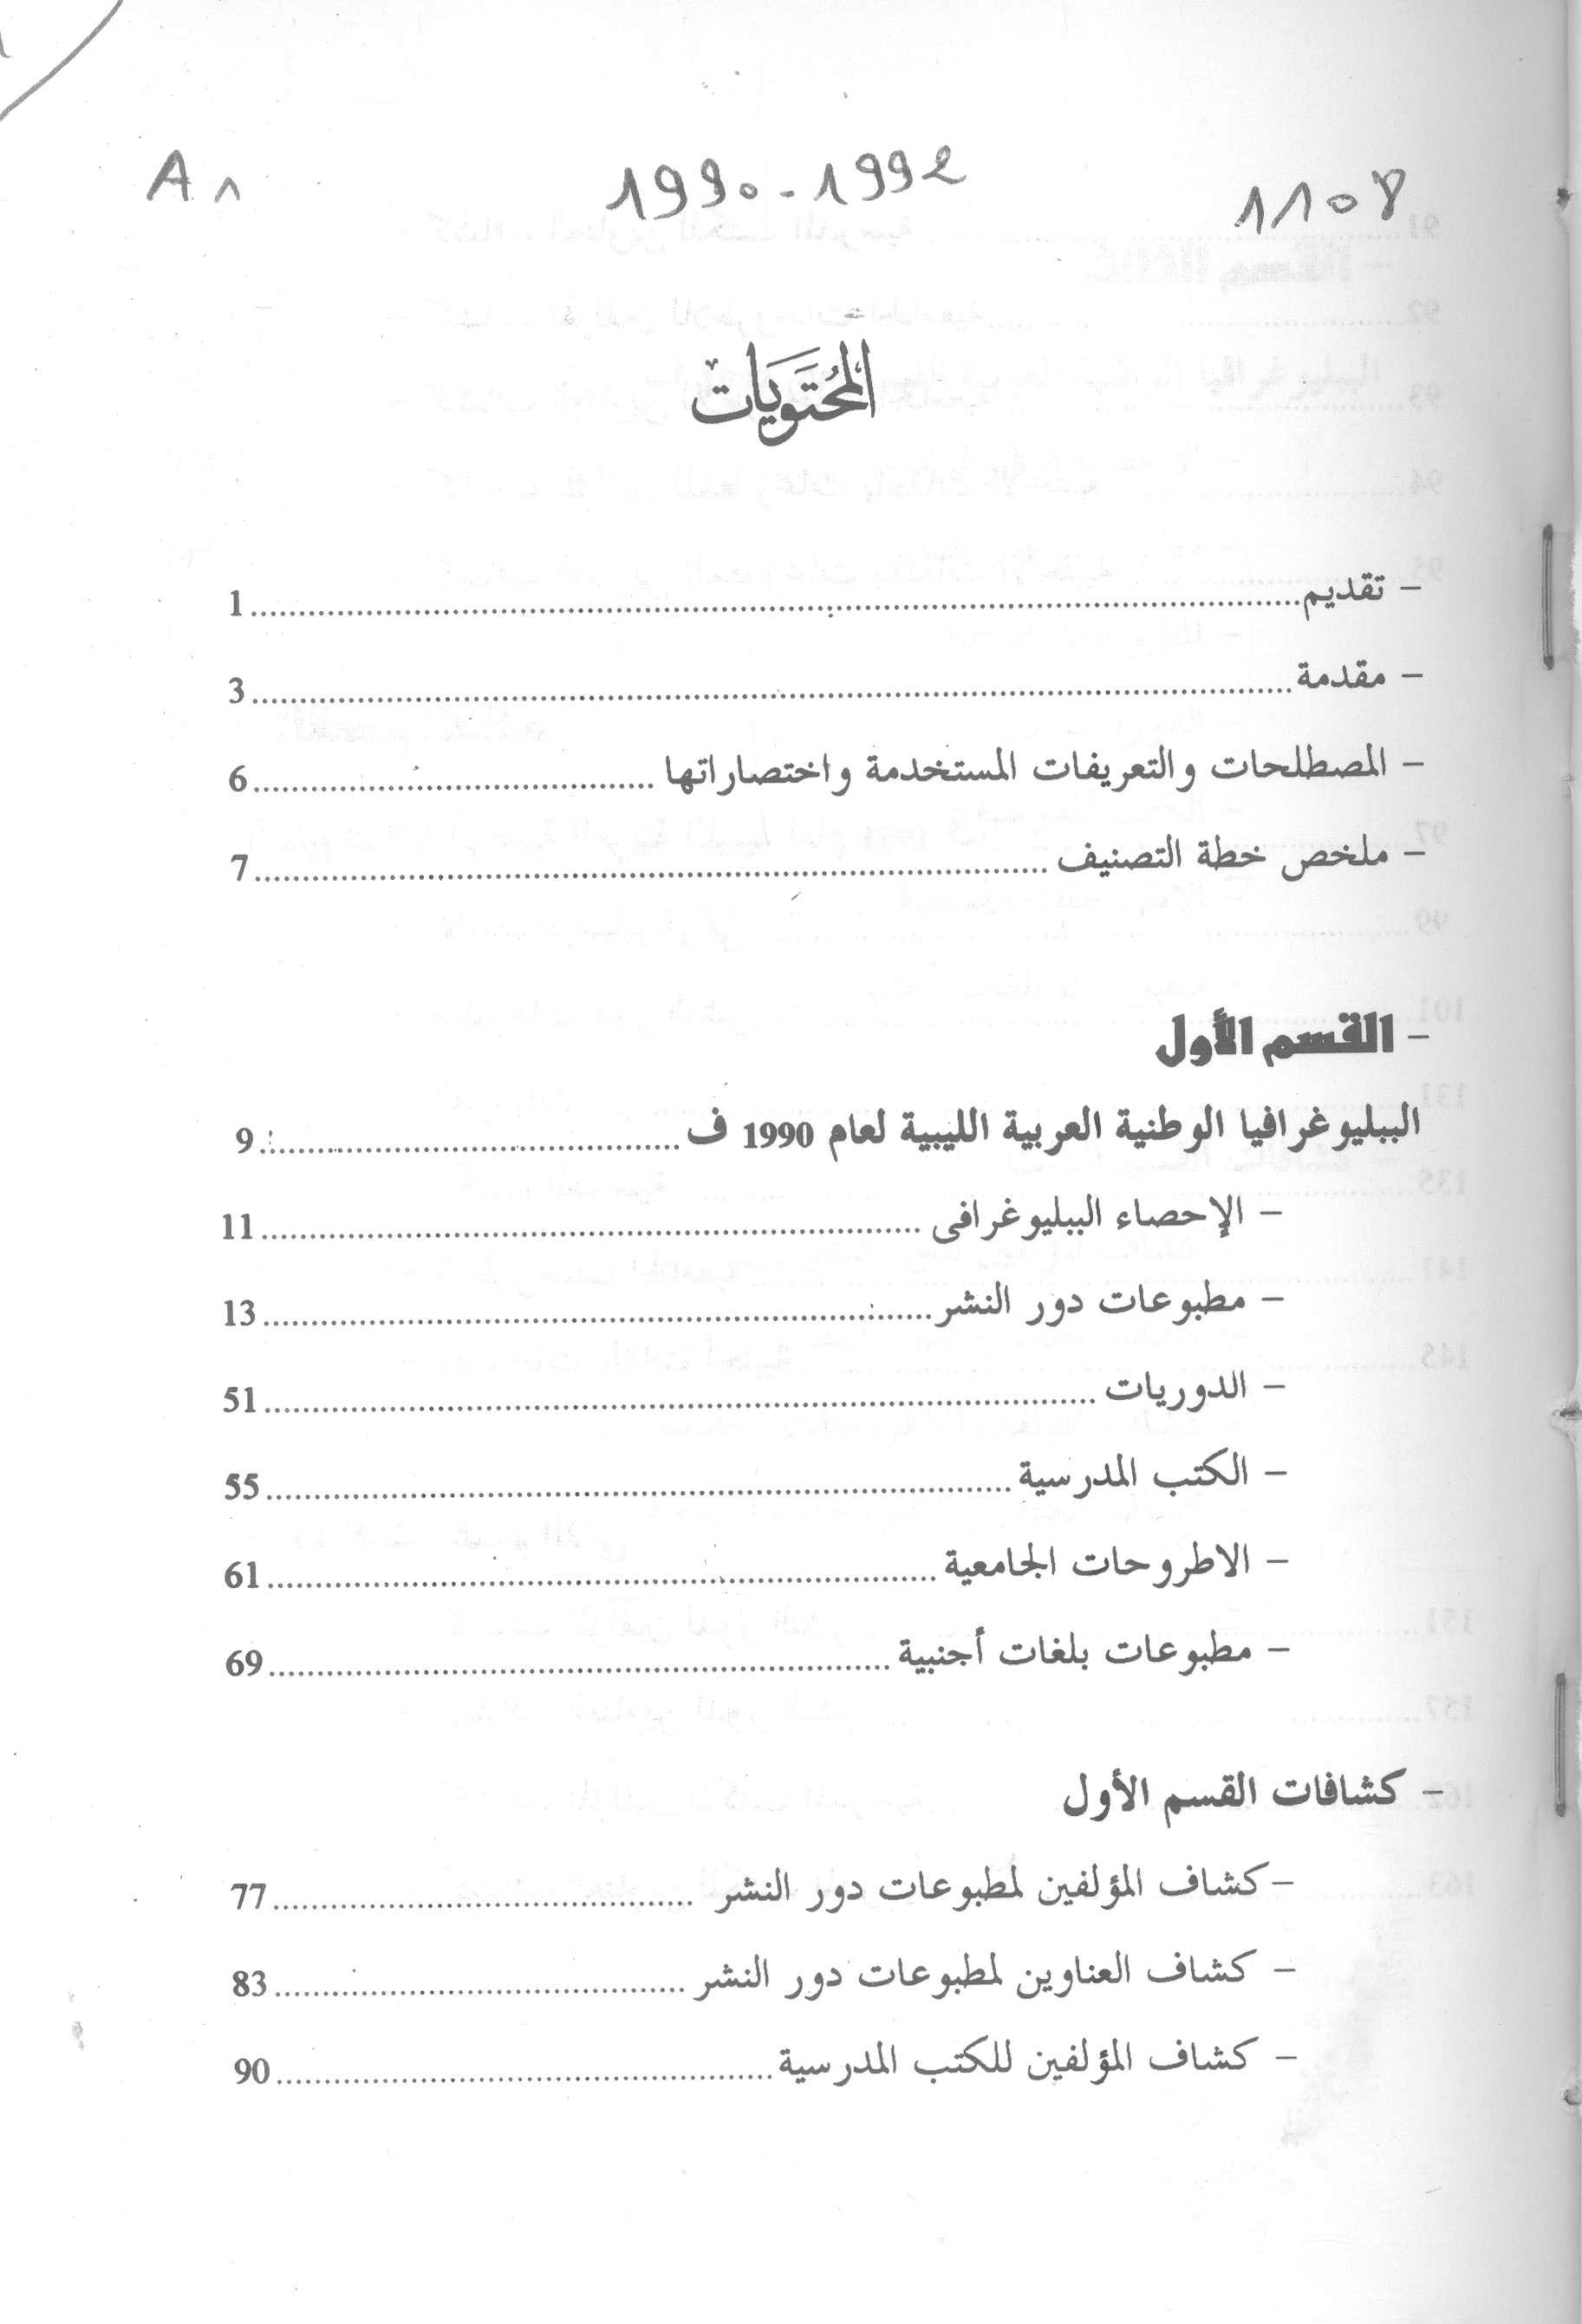 A 1990-1992 1108
المُحتَويَات
- تقديم....................1
- مقدمة....................3
- المصطلحات والتعريفات المستخدمة واختصاراتها....................6
- ملخص خطة التصنيف....................7
- القسم الأول
الببليوغرافيا الوطنية العربية الليبية لعام 1990 ف....................9
- الإحصاء الببليوغرافى....................11
- مطبوعات دور النشر....................13
- الدوريات....................51
- الكتب المدرسية....................55
- الاطروحات الجامعية....................61
- مطبوعات بلغات أجنبية....................69
- كشافات القسم الأول
- كشاف المؤلفين لمطبوعات دور النشر....................77
- كشاف العناوين لمطبوعات دور النشر....................83
- كشاف المؤلفين للكتب المدرسية....................90